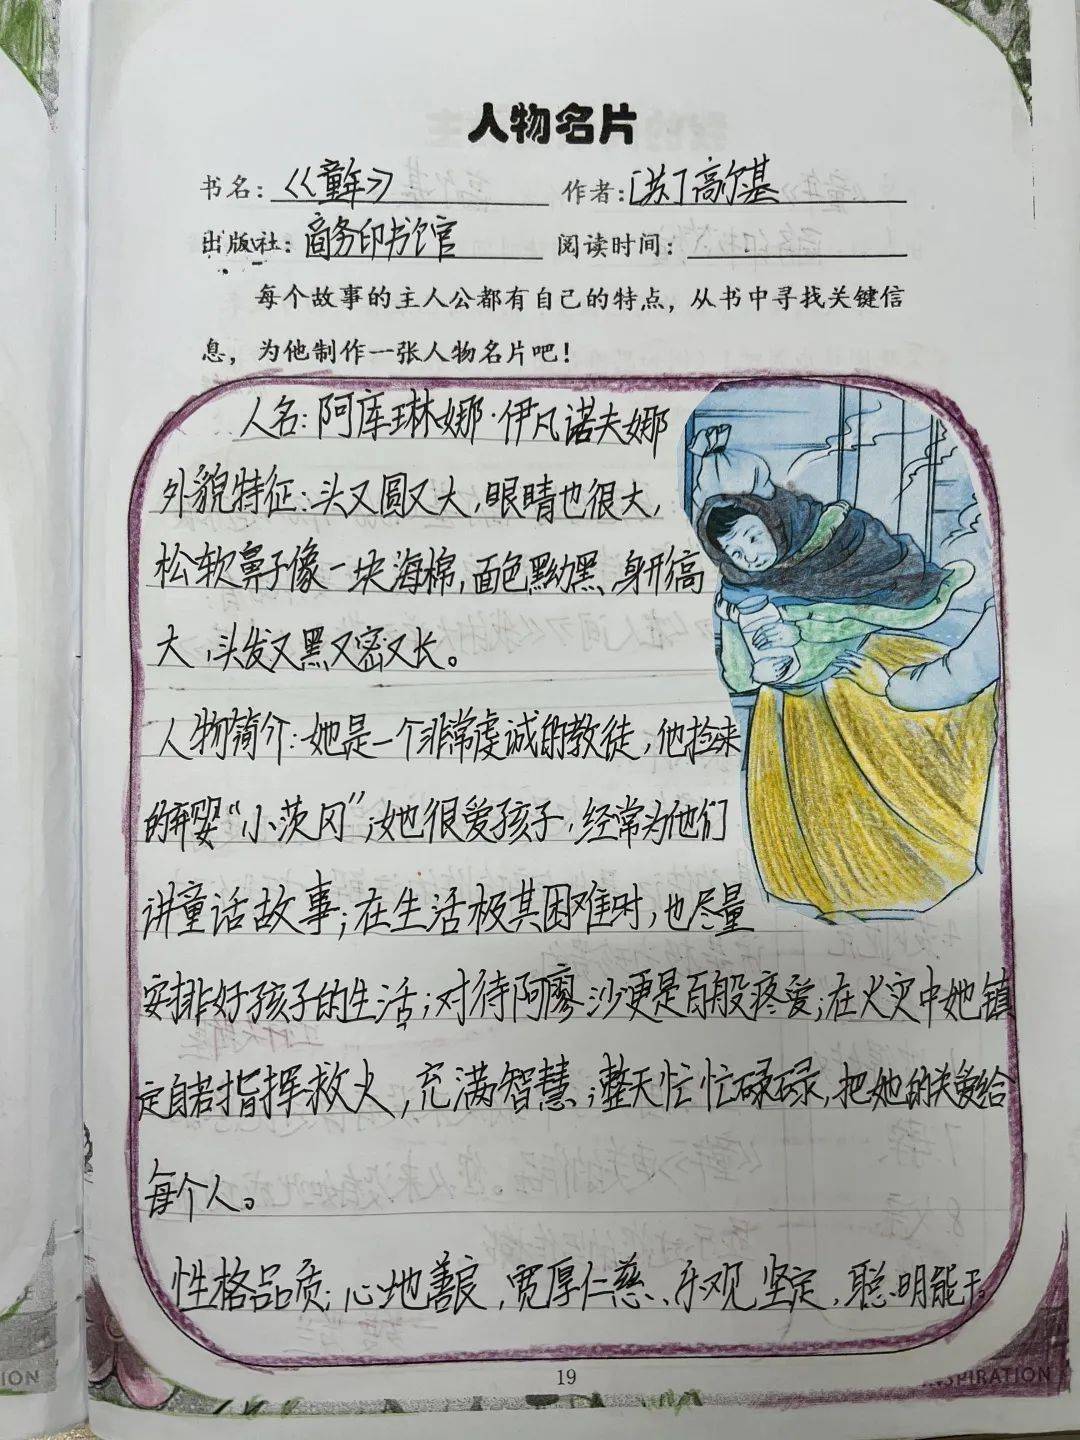 人物名片
书名：《童年》 作者：[苏]高尔基
出版社：商务印书馆 阅读时间：
每个故事的主人公都有自己的特点，从书中寻找关键信
息，为他制作一张人物名片吧！
人名：阿库琳娜·伊凡诺夫娜
外貌特征：头又圆又大，眼睛也很大，
松软鼻子像一块海棉，面色黝黑、身形高
大，头发又黑又密又长。
人物简介：她是一个非常虔诚的教徒，他捡来
的弃婴“小茨冈”；她很爱孩子，经常为他们
讲童话故事；在生活极其困难时，也尽量
安排好孩子的生活；对待阿廖沙更是百般疼爱；在火灾中她镇
定自若指挥救火，充满智慧；整天忙忙碌碌，把她的关爱给
每个人。
性格品质：心地善良，宽厚仁慈、乐观坚定，聪明能干。
19
INSPIRATION
ION